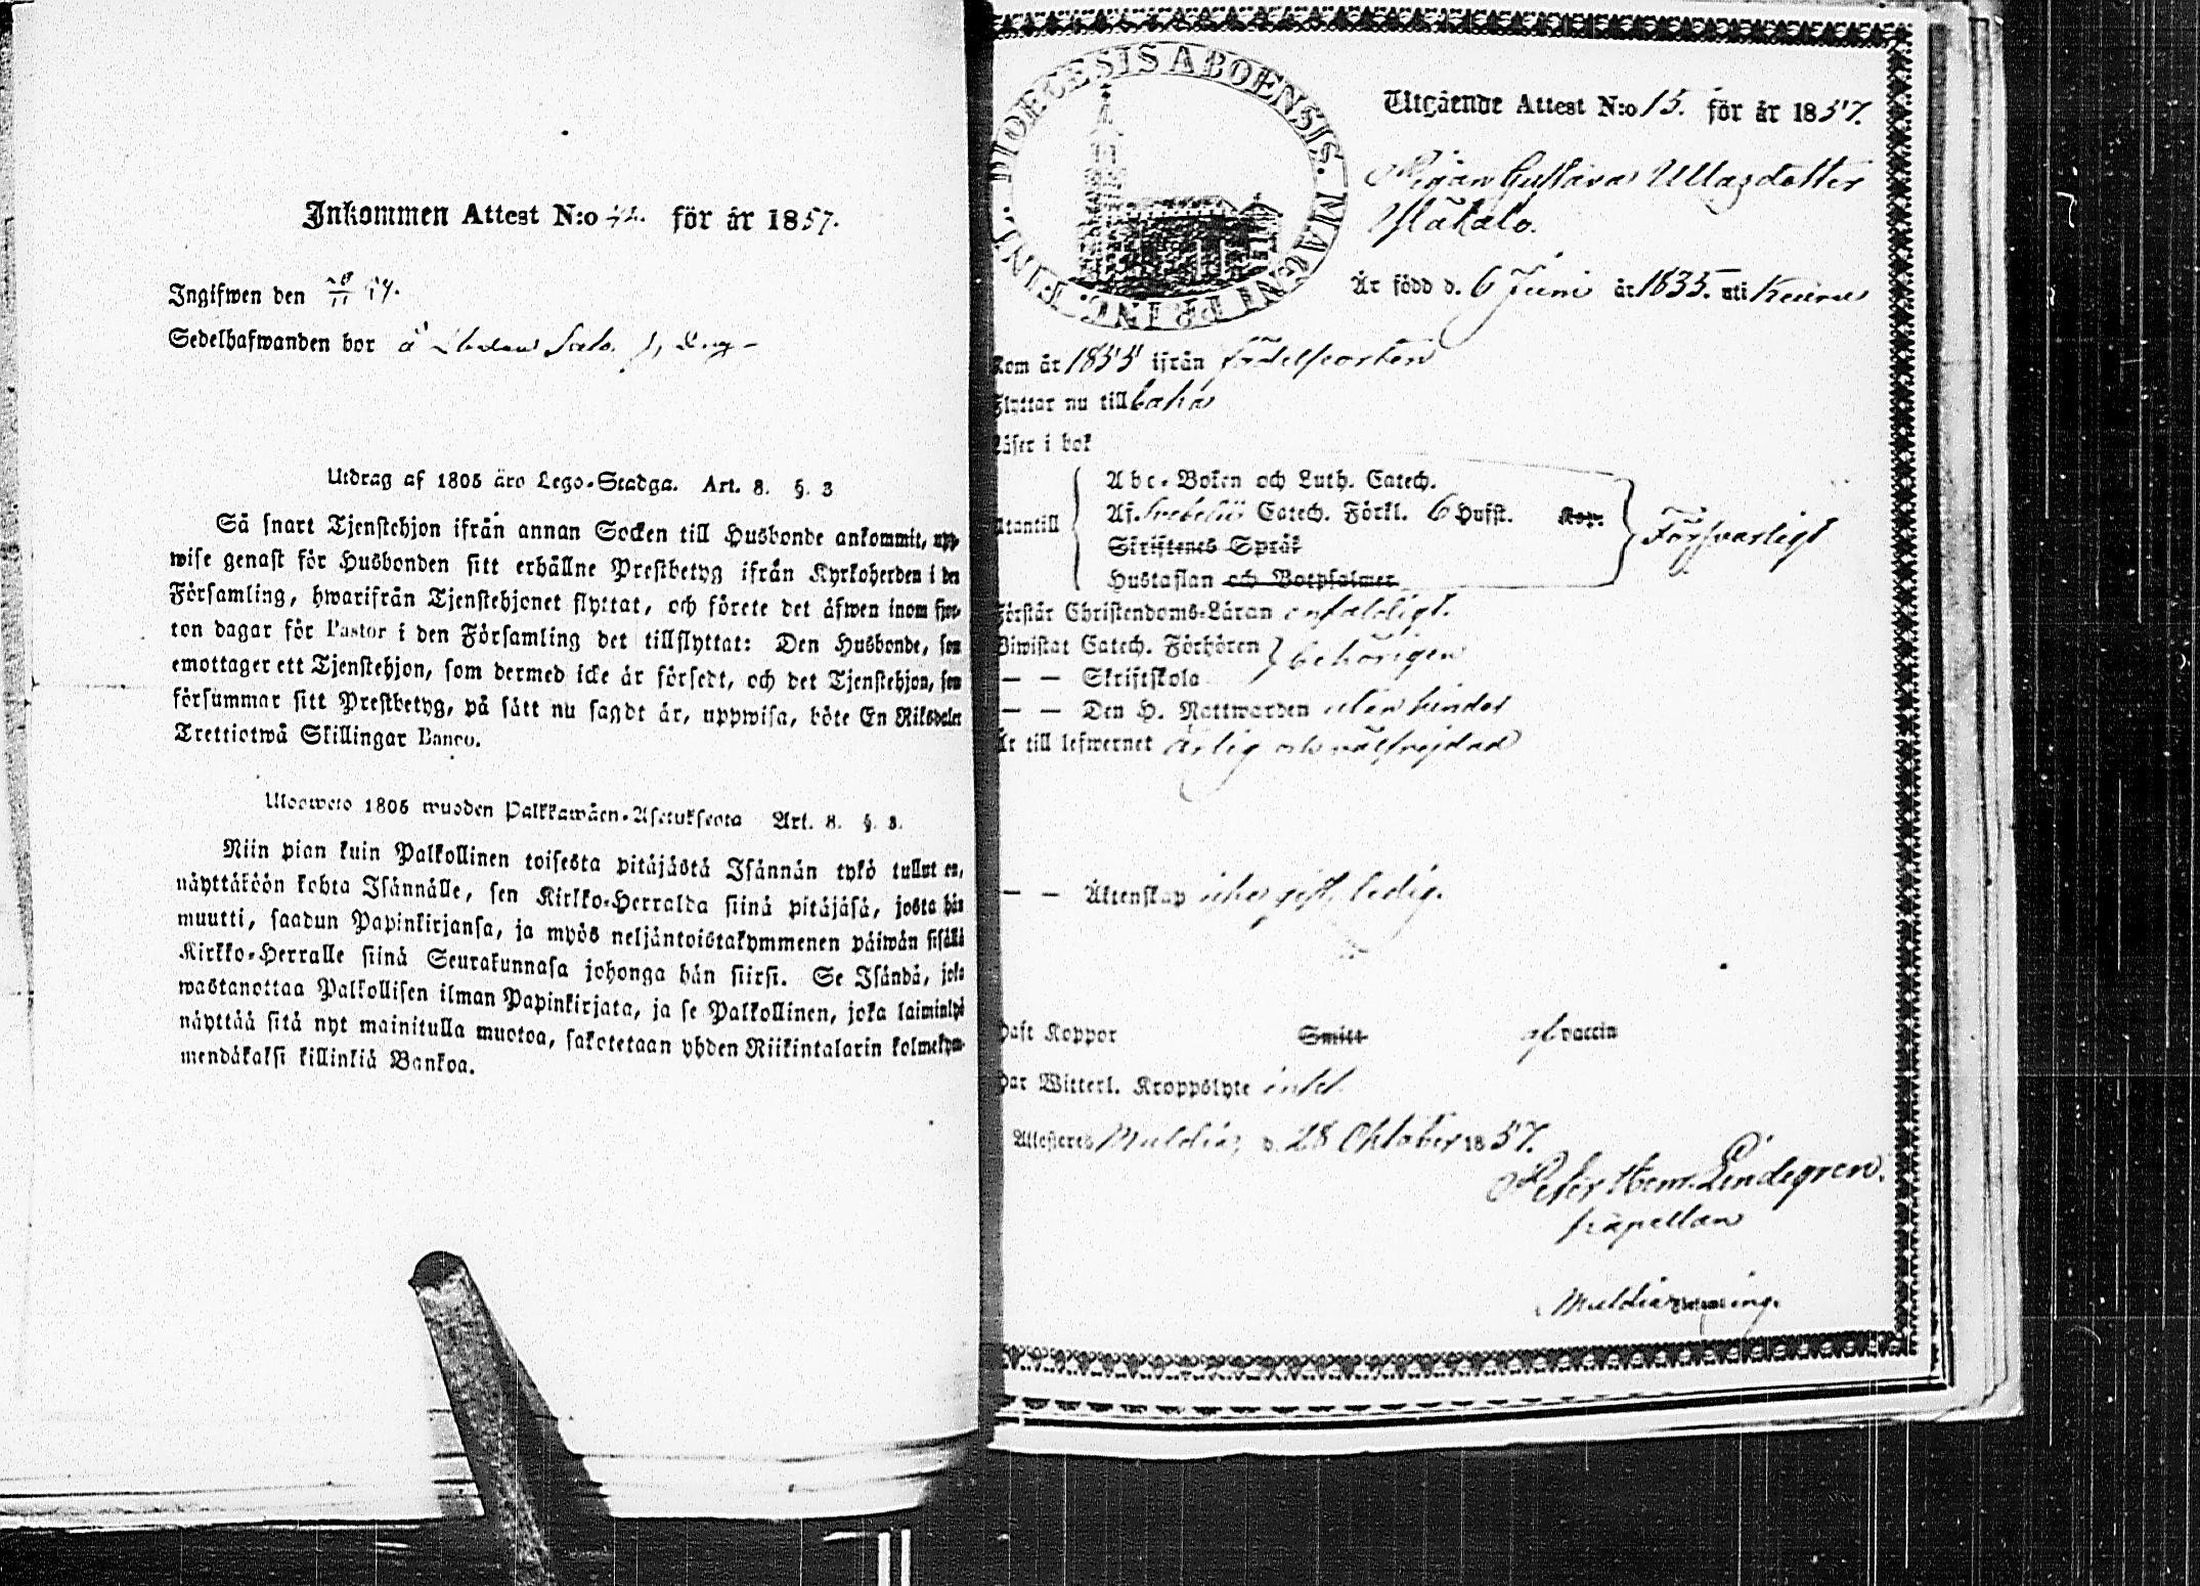 Inkommen Attest N:o 42. för år 1857.
Ingifwen den 28/11 57.
Sedelhafwanden bor å
Utdrag af 1805 års Lego-Stadga. Art. 8. §. 3
Så snart Tjenstehjon ifrån annan Socken till Husbonde ankommit, upp-
wise genast för Husbonden sitt erhållne Prestbetyg ifrån Kyrkoherden i den
Församling, hwarifrån Tjenstehjonet flyttat, och förete det äfwen inom fjor-
ton dagar för Pastor i den Församling det tillflyttat: Den Husbonde, som
emottager ett Tjenstehjon, som dermed icke är försedt, och det Tjenstehjon, som
försummar sitt Prestbetyg, på sätt nu sagdt är, uppwisa, böte En Riksdaler
Trettiotwå Skillingar Banco.
Ulosweto 1805 wuoden Palkkawäen-Asetuksesta Art. 8. §. 3.
Niin pian kuin Palkollinen toisesta pitäjästä Isännän tykö tullut on,
näyttäköön kohta Isännälle, sen Kirkko-Herralda siinä pitäjäsä, josta hän
muutti, saadun Papinkirjansa, ja myös neljäntoistakymmenen päiwän sisällä
Kirkko-Herralle siinä Seurakunnasa johonga hän siirsi. Se Isändä, joka
wastanottaa Palkollisen ilman Papinkirjata, ja se Palkollinen, joka laiminlyö
näyttää sitä nyt mainitulla muotoa, sakotetaan yhden Riikintalarin kolmekym-
mendäkaksi killinkiä Bankoa.
DIOECESIS ABOENSIS. MAGNI PRINC. FINL.
Utgående Attest N:o 15. för år 1857.
Pigan Gustava Ullasdotter
Ylätalo.
Är född d. 6 Juni år 1835. uti
Kom år 1855 ifrån födelseorten
Flyttar nu tillbaka
Läser i bok
Utantill
Abc-Boken och Luth. Catech.
Af Svebelii Catech. Förkl. 6 Hufst. Kap.
Skriftenes Språk
Hustaflan och Botpsalmer
Försvarligt
Förstår Christendoms-Läran enfaldigt.
Biwistat Catech. Förhören
behörigen
— — Skriftskola
— — Den H. Nattwarden utan hinder
Är till lefwernet ärlig och välfrejdad
— — Äktenskap icke gift, ledig.
Haft Koppor Smitt gl vaccin
Har Witterl. Kroppslyte intet
Attesteres Muldia, d. 28 Oktober 1857.
Peter Herm. Lindegren.
kapellan